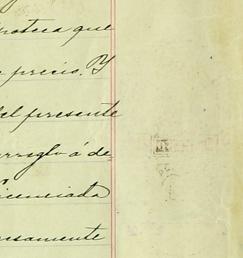 poteca que
precio. Y
del presente
arreglo á de=
licenciada
resamente